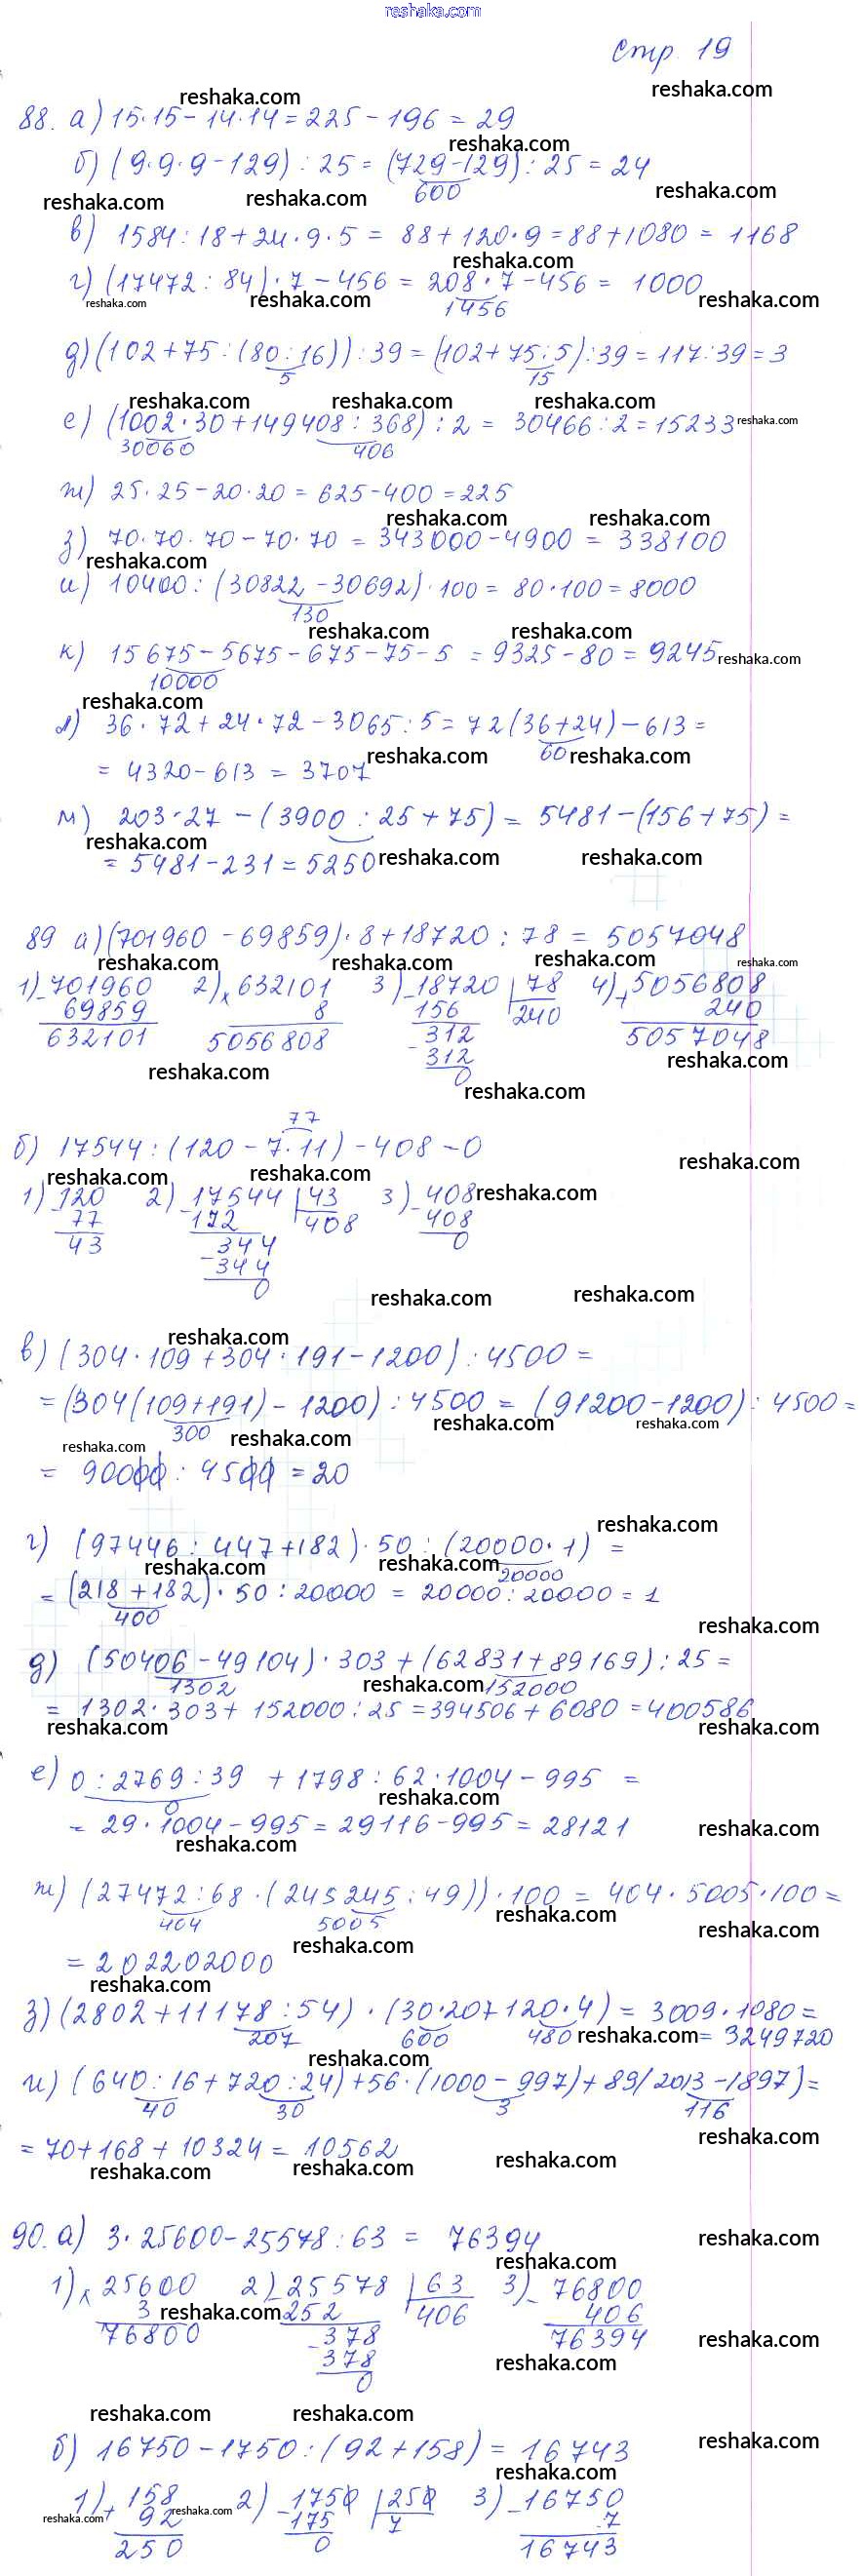 reshaka.com
стр. 19
88. а) 15·15 - 14·14 = 225 - 196 = 29
б) (9·9·9 - 129) : 25 = (729 - 129) : 25 = 24
600
в) 1584 : 18 + 24·9·5 = 88 + 120·9 = 88 + 1080 = 1168
г) (17472 : 84)·7 - 456 = 208·7 - 456 = 1000
1456
д) (102 + 75 : (80 : 16)) : 39 = (102 + 75 : 5) : 39 = 117 : 39 = 3
5 15
е) (1002·30 + 149408 : 368) : 2 = 30466 : 2 = 15233
30060 406
ж) 25·25 - 20·20 = 625 - 400 = 225
з) 70·70·70 - 70·70 = 343000 - 4900 = 338100
и) 10400 : (30822 - 30692)·100 = 80·100 = 8000
130
к) 15675 - 5675 - 675 - 75 - 5 = 9325 - 80 = 9245
10000
л) 36·72 + 24·72 - 3065 : 5 = 72(36 + 24) - 613 =
60
= 4320 - 613 = 3707
м) 203·27 - (3900 : 25 + 75) = 5481 - (156 + 75) =
= 5481 - 231 = 5250
89 а) (701960 - 69859)·8 + 18720 : 78 = 5057048
1) - 701960 2) x 632101 3) - 18720 | 78 4) + 5056808
69859 8 156 240 240
632101 5056808 312 5057048
- 312
0
77
б) 17544 : (120 - 7·11) - 408 - 0
1) - 120 2) - 17544 | 43 3) - 408
77 172 408 408
43 344 0
- 344
0
в) (304·109 + 304·191 - 1200) : 4500 =
= (304(109 + 191) - 1200) : 4500 = (91200 - 1200) : 4500 =
300
= 90000 : 4500 = 20
г) (97446 : 447 + 182)·50 : (20000·1) =
20000
= (218 + 182)·50 : 20000 = 20000 : 20000 = 1
400
д) (50406 - 49104)·303 + (62831 + 89169) : 25 =
1302 152000
= 1302·303 + 152000 : 25 = 394506 + 6080 = 400586
е) 0 : 2769 : 39 + 1798 : 62·1004 - 995 =
0
= 29·1004 - 995 = 29116 - 995 = 28121
ж) (27472 : 68·(245245 : 49))·100 = 404·5005·100 =
404 5005
= 202202000
з) (2802 + 11178 : 54)·(30·20 + 120·4) = 3009·1080 =
207 600 480 = 3249720
и) (640 : 16 + 720 : 24) + 56·(1000 - 997) + 89(2013 - 1897) =
40 30 3 116
= 70 + 168 + 10324 = 10562
90. а) 3·25600 - 25578 : 63 = 76394
1) x 25600 2) - 25578 | 63 3) - 76800
3 252 406 406
76800 378 76394
- 378
0
б) 16750 - 1750 : (92 + 158) = 16743
1) + 158 2) - 1750 | 250 3) - 16750
92 175 7 7
250 0 16743